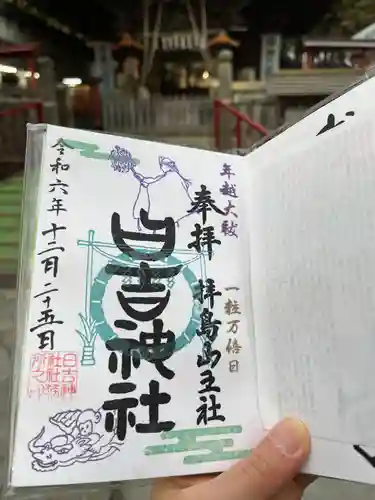 年越大祓
一粒万倍日
奉拝 拝島山王社
日吉神社
令和六年十二月二十五日